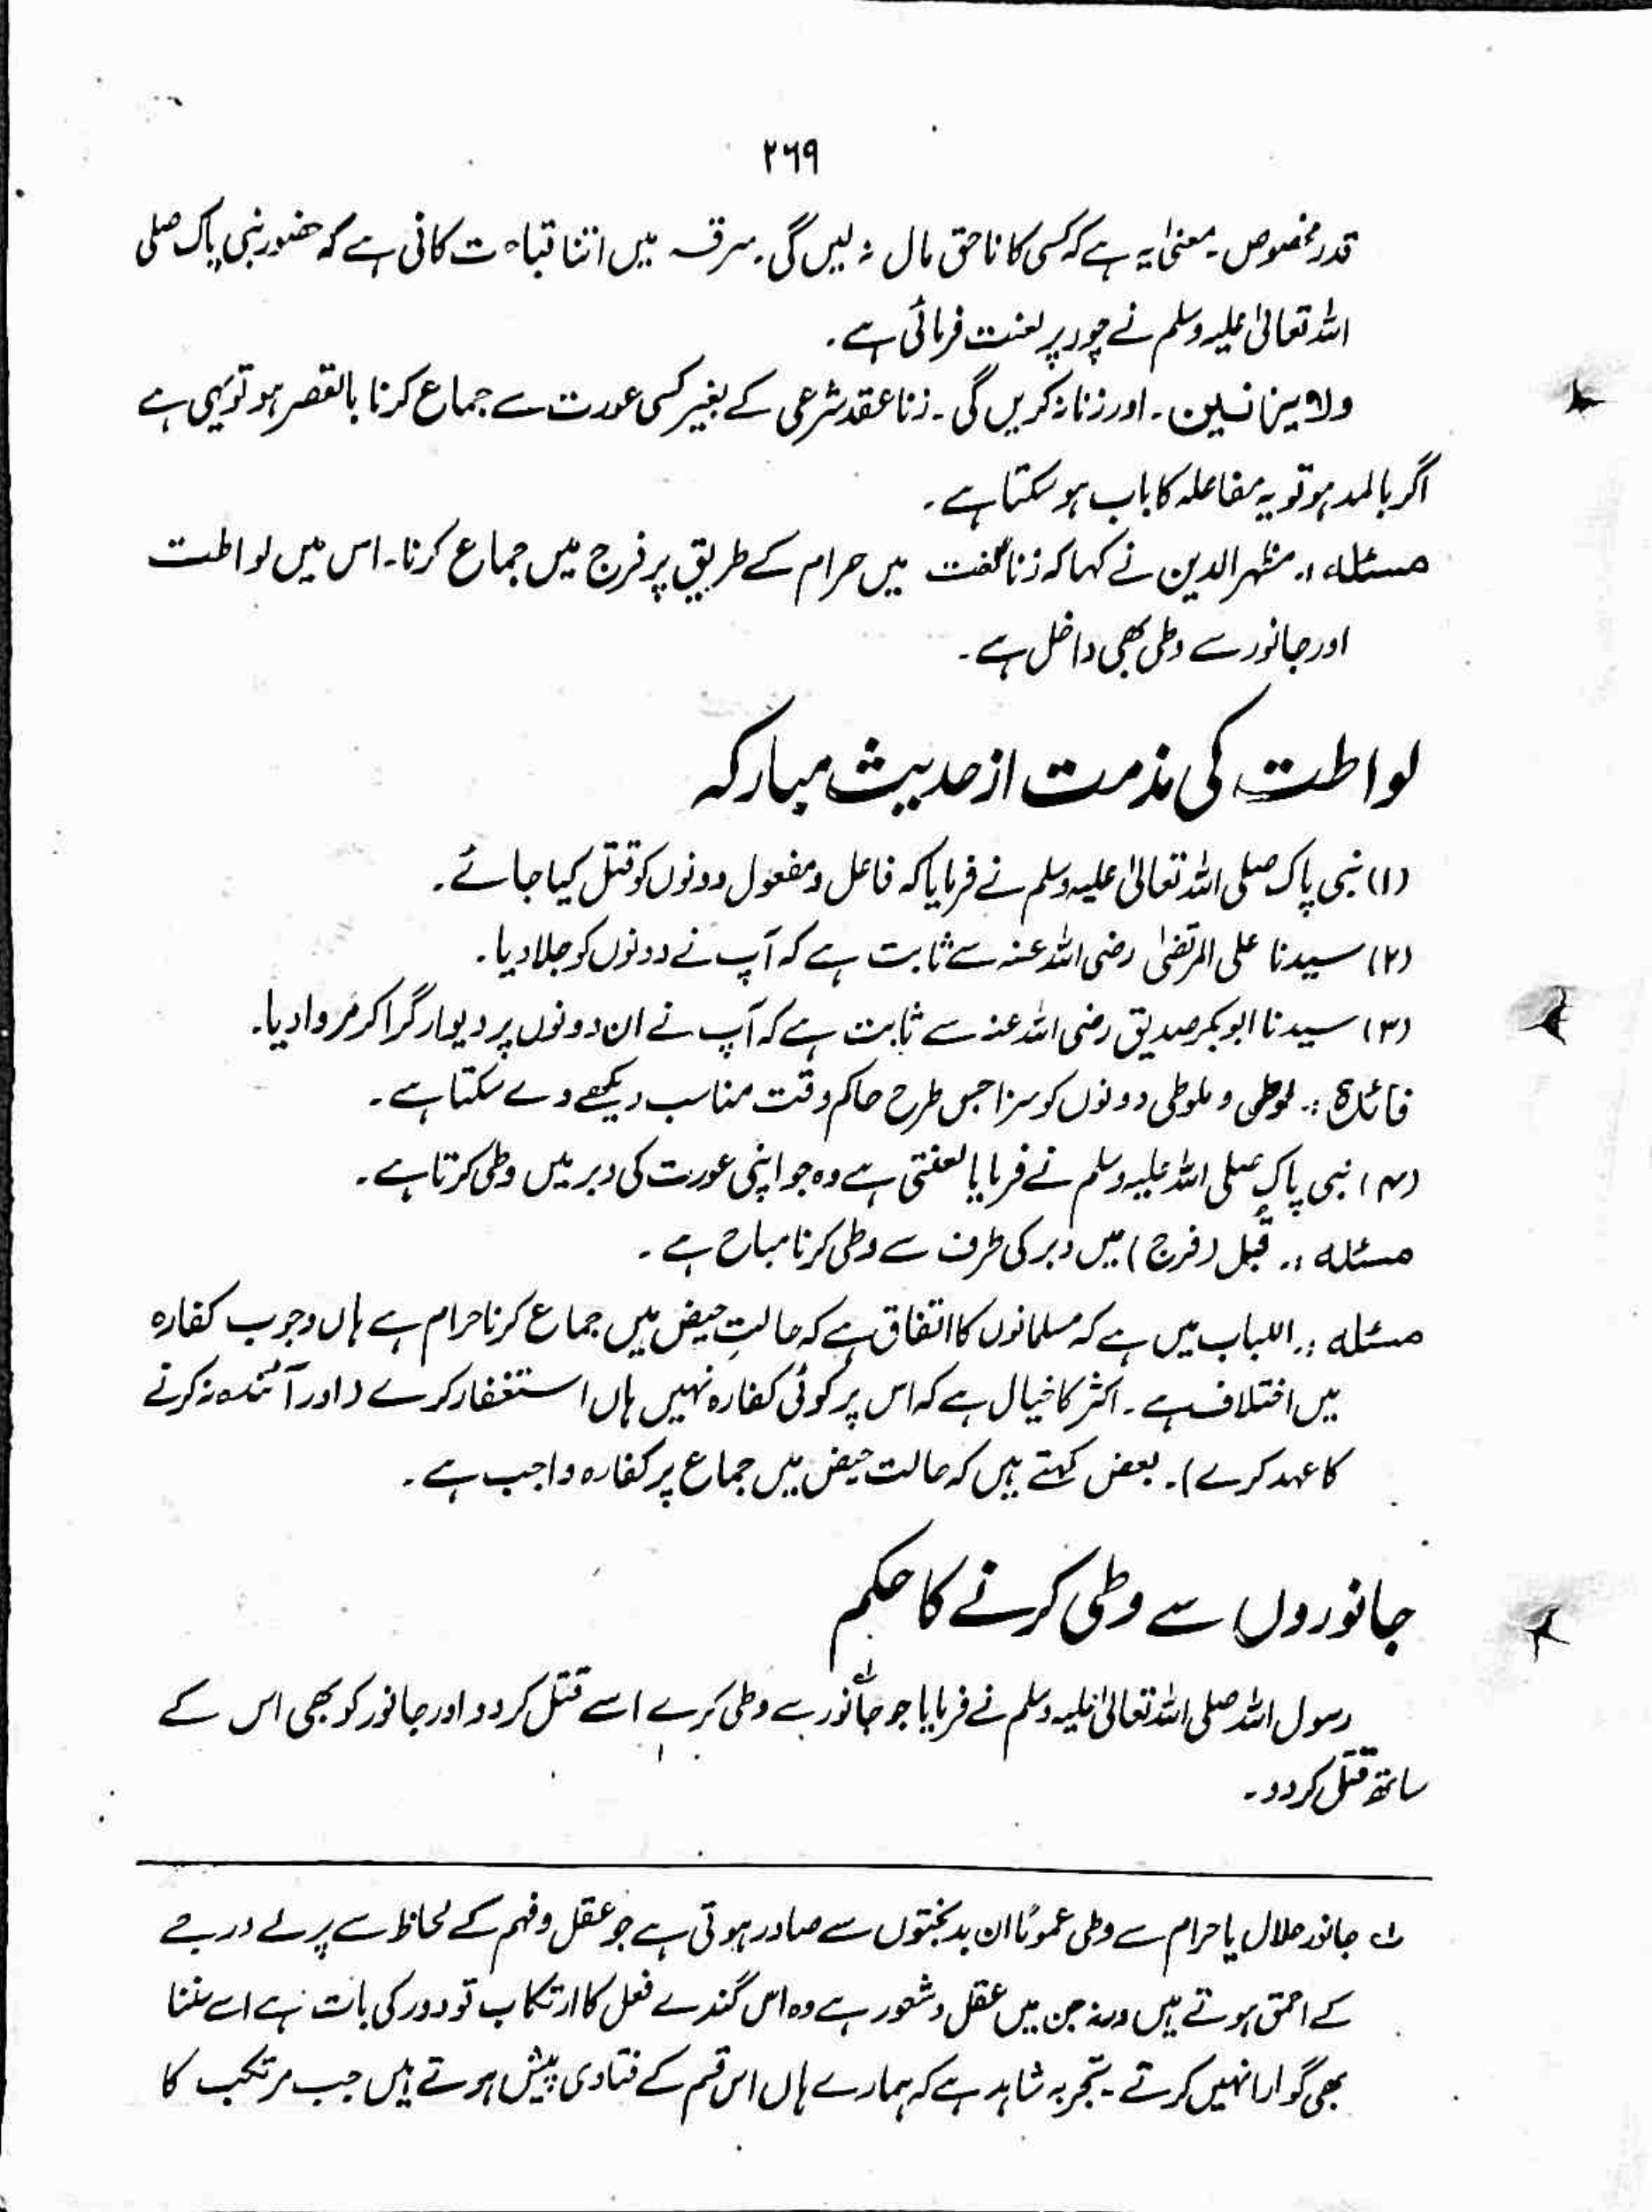 ۲۶۹
قدر مخصوص۔ معنیٰ یہ ہے کہ کسی کا ناحق مال نہ لیں گی۔ سرقہ میں اتنا قباحت کافی ہے کہ حضور نبی پاک صلی
اللہ تعالیٰ علیہ وسلم نے چور پر لعنت فرمائی ہے۔
ولا یزنین۔ اور زنا نہ کریں گی۔ زنا عقد شرعی کے بغیر کسی عورت سے جماع کرنا بالقصر ہو تو یہی ہے
اگر بالمد ہو تو یہ مفاعلہ کا باب ہو سکتا ہے۔
مسئلہ :۔ مظہر الدین نے کہا کہ زنا لغت میں حرام کے طریق پر فرج میں جماع کرنا۔ اس میں لواطت
اور جانور سے وطی بھی داخل ہے۔
لواطت کی مذمت از حدیث مبارکہ
(۱) نبی پاک صلی اللہ تعالیٰ علیہ وسلم نے فرمایا کہ فاعل و مفعول دونوں کو قتل کیا جائے۔
(۲) سیدنا علی المرتضیٰ رضی اللہ عنہ سے ثابت ہے کہ آپ نے دونوں کو جلا دیا۔
(۳) سیدنا ابوبکر صدیق رضی اللہ عنہ سے ثابت ہے کہ آپ نے ان دونوں پر دیوار گرا کر مروا دیا۔
فائدہ :۔ لوطی و ملوطی دونوں کو سزا جس طرح حاکم وقت مناسب دیکھے دے سکتا ہے۔
(۴) نبی پاک صلی اللہ علیہ وسلم نے فرمایا لعنتی ہے وہ جو اپنی عورت کی دبر میں وطی کرتا ہے۔
مسئلہ :۔ قبل (فرج) میں دبر کی طرف سے وطی کرنا مباح ہے۔
مسئلہ :۔ اللباب میں ہے کہ مسلمانوں کا اتفاق ہے کہ حالتِ حیض میں جماع کرنا حرام ہے ہاں وجوب کفارہ
میں اختلاف ہے۔ اکثر کا خیال ہے کہ اس پر کوئی کفارہ نہیں ہاں استغفار کرے (اور آئندہ نہ کرنے
کا عہد کرے)۔ بعض کہتے ہیں کہ حالت حیض میں جماع پر کفارہ واجب ہے۔
جانوروں سے وطی کرنے کا حکم
رسول اللہ صلی اللہ تعالیٰ علیہ وسلم نے فرمایا جو جانور سے وطی کرے اسے قتل کر دو اور جانور کو بھی اس کے
ساتھ قتل کر دو۔
جانور حلال یا حرام سے وطی عموماً ان بدبختوں سے صادر ہوتی ہے جو عقل و فہم کے لحاظ سے پرلے درجے
کے احمق ہوتے ہیں ورنہ جن میں عقل و شعور ہے وہ اس گندے فعل کا ارتکاب تو دور کی بات ہے اسے سننا
بھی گوارا نہیں کرتے۔ تجربہ شاہد ہے کہ ہمارے ہاں اس قسم کے فتاویٰ پیش ہوتے ہیں جب مرتکب کا